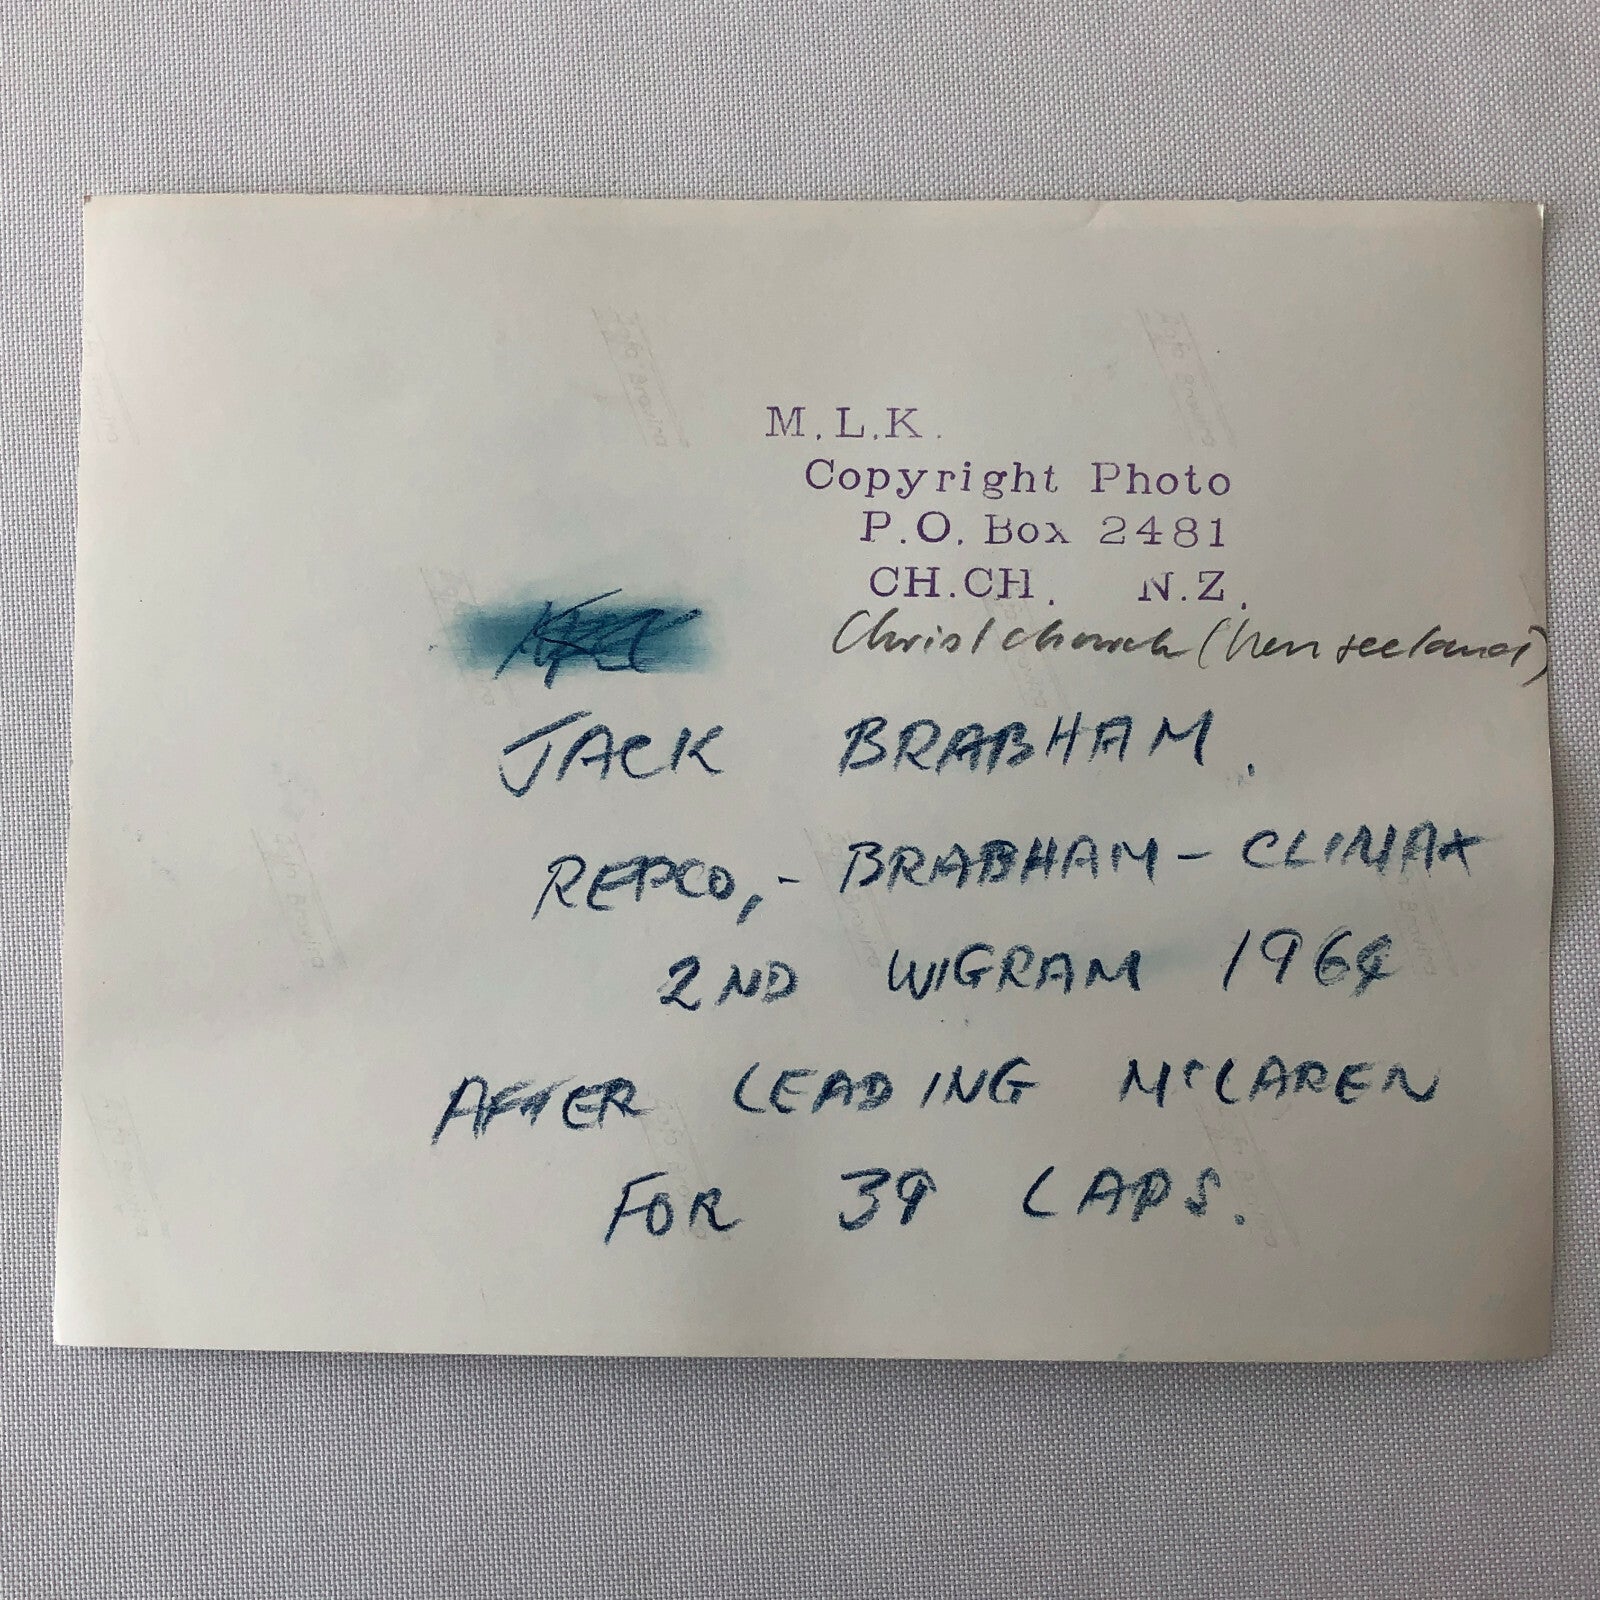 M.L.K.
Copyright Photo
P.O. Box 2481
CH.CH. N.Z.
Christchurch (Neuseeland)
JACK BRABHAM.
REPCO,- BRABHAM - CLIMAX
2ND WIGRAM 1964
AFTER LEADING McLAREN
FOR 39 LAPS.